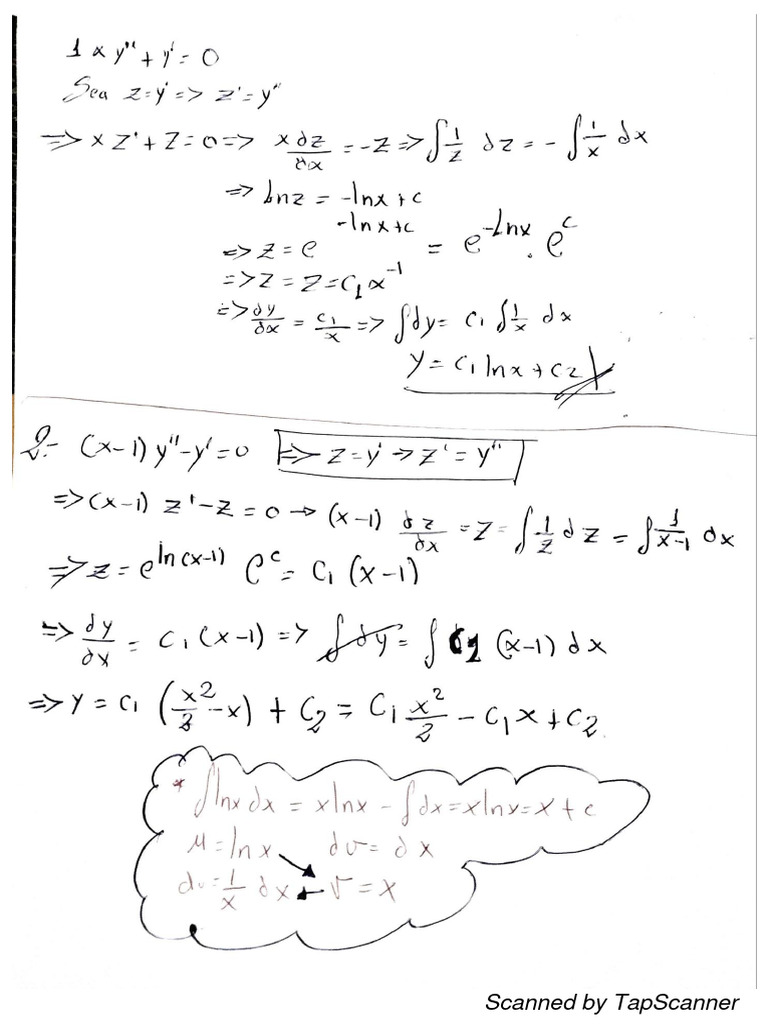 1 x y'' + y' = 0
Sea z=y' => z' = y''
=> x z' + z = 0 => x dz/dx = -z => ∫ 1/z dz = - ∫ 1/x dx
=> ln z = -lnx + c
=> z = e^(-lnx+c) = e^(-lnx) . e^c
=> z = z = c₁x⁻¹
=> dy/dx = c₁/x => ∫dy = c₁ ∫ 1/x dx
y = c₁ lnx + c2
2.- (x-1) y'' - y' = 0 => z=y' → z' = y''
=> (x-1) z' - z = 0 → (x-1) dz/dx = z = ∫ 1/z dz = ∫ 1/(x-1) dx
=> z = e^(ln(x-1)) e^c = c₁ (x-1)
=> dy/dx = c₁ (x-1) => ∫dy = ∫ c1 (x-1) dx
=> y = c₁ (x²/2 - x) + c₂ = c₁ x²/2 - c₁x + c₂
* ∫lnx dx = xlnx - ∫dx = xlnx = x + c
u = ln x dv = dx
du = 1/x dx v = x
Scanned by TapScanner